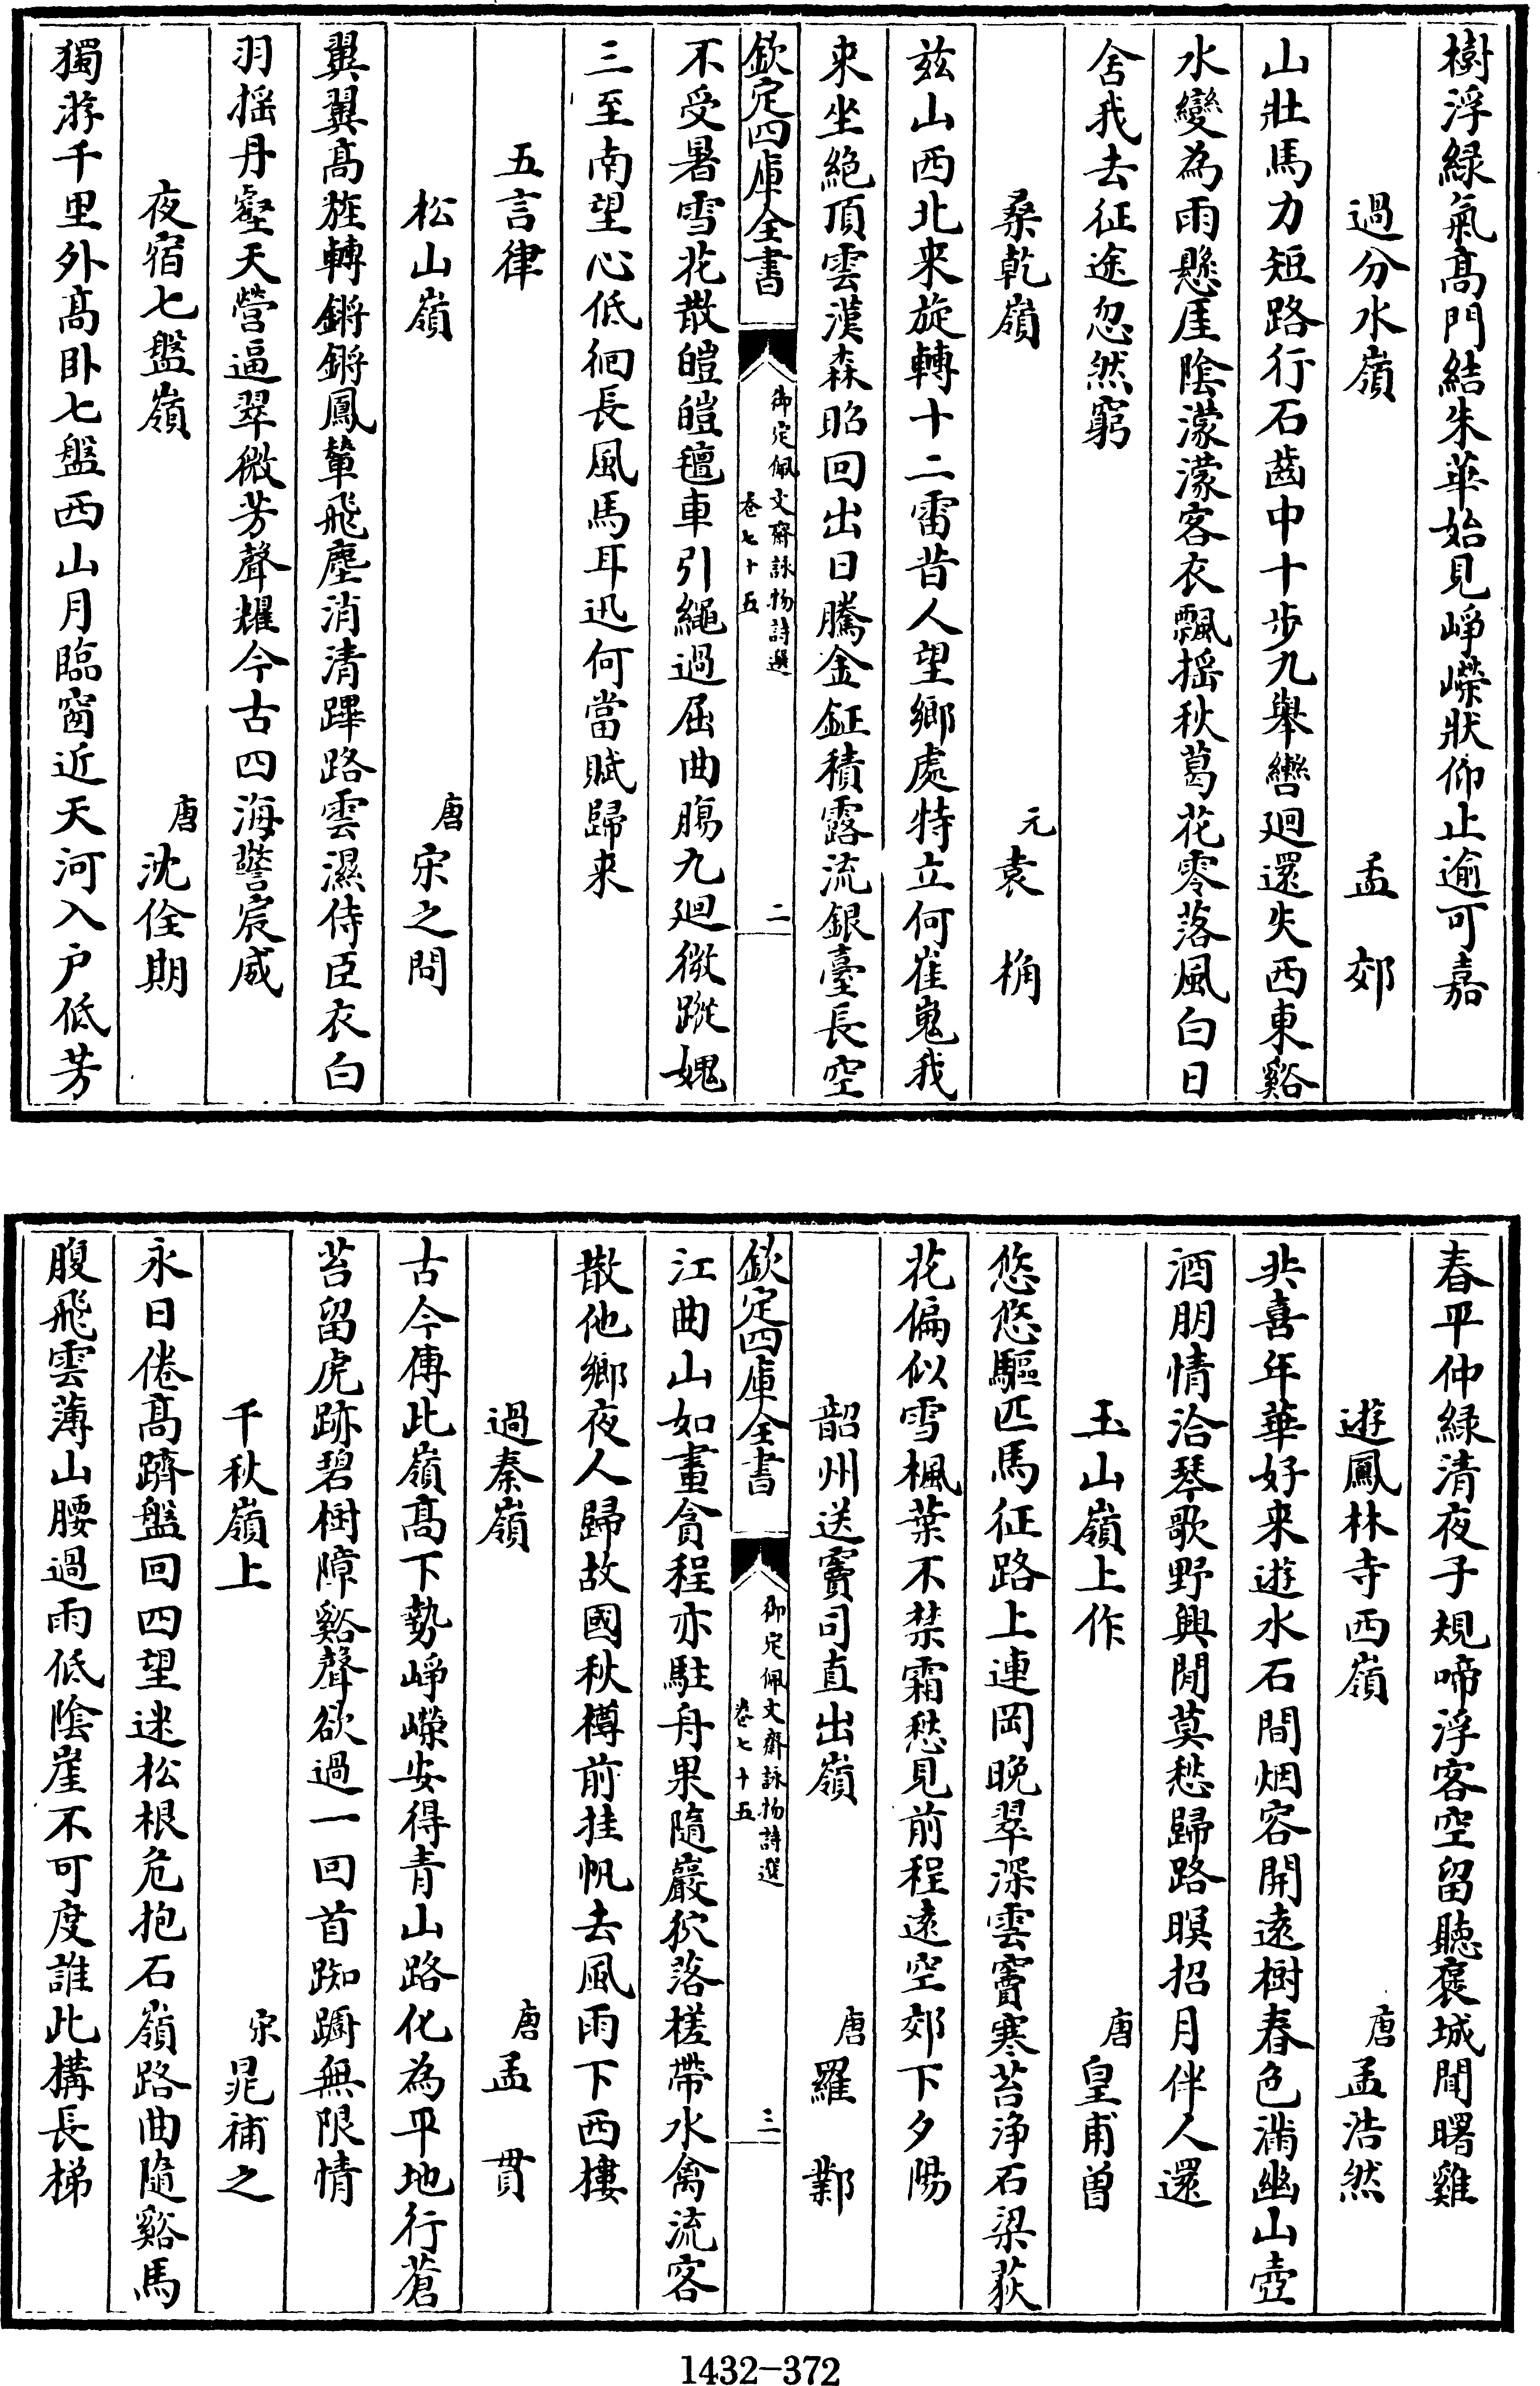 樹浮綠氣高門結朱華始見崢嶸狀仰止逾可嘉
過分水嶺 孟郊
山壯馬力短路行石齒中十步九舉轡迴還失西東谿
水變為雨懸厓陰濛濛客衣飄揺秋葛花零落風白日
舍我去征途忽然窮
桑乾嶺 元袁桷
兹山西北来旋轉十二雷昔人望鄉處特立何崔嵬我
来坐絶頂雲漢森昭回出日騰金鉦積露流銀臺長空
欽定四庫全書
御定佩文齋詠物詩選
卷七十五
二
不受暑雪花散皚皚氊車引繩過屈曲腸九迴微蹤媿
三至南望心低徊長風馬耳迅何當賦歸来
五言律
松山嶺 唐宋之問
翼翼高旌轉鏘鏘鳳輦飛塵消清蹕路雲濕侍臣衣白
羽揺丹壑天營逼翠微芳聲耀今古四海警宸威
夜宿七盤嶺 唐沈佺期
獨游千里外高臥七盤西山月臨窗近天河入户低芳
春平仲綠清夜子規啼浮客空留聽褒城聞曙雞
遊鳳林寺西嶺 唐孟浩然
共喜年華好来遊水石間烟容開逺樹春色滿幽山壺
酒朋情洽琴歌野興閒莫愁歸路暝招月伴人還
玉山嶺上作 唐皇甫曾
悠悠驅匹馬征路上連岡晚翠深雲竇寒苔浄石梁荻
花偏似雪楓葉不禁霜愁見前程逺空郊下夕陽
韶州送竇司直出嶺 唐羅鄴
欽定四庫全書
御定佩文齋詠物詩選
卷七十五
三
江曲山如畫貪程亦駐舟果隨巖狖落槎帶水禽流客
散他鄉夜人歸故國秋樽前挂帆去風雨下西樓
過秦嶺 唐孟貫
古今傳此嶺高下勢崢嶸安得青山路化為平地行蒼
苔留虎跡碧樹障谿聲欲過一回首踟蹰無限情
千秋嶺上 宋晁補之
永日倦高躋盤回四望迷松根危抱石嶺路曲隨谿馬
腹飛雲薄山腰過雨低陰崖不可度誰此構長梯
1432-372